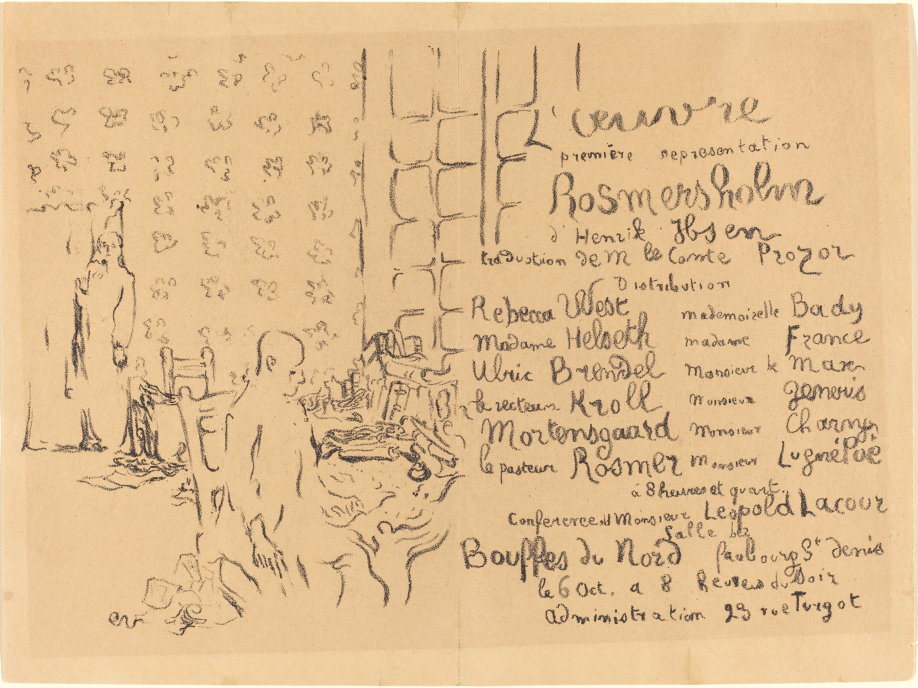 L'œuvre
première representation
Rosmersholm
d'Henrik Ibsen
traduction de M le Comte Prozor
Distribution
Rebecca West mademoiselle Bady
Madame Helseth madame France
Ulric Brendel Monsieur de Max
le recteur Kroll Monsieur Jemeris
Mortensgaard Monsieur Charny
le pasteur Rosmer Monsieur Lugné Poë
à 8 heures et quart
Conference d Monsieur Leopold Lacour
Salle des
Bouffes du Nord faubourg St denis
le 6 Oct. a 8 heures du Soir
administration 23 rue Turgot
ev